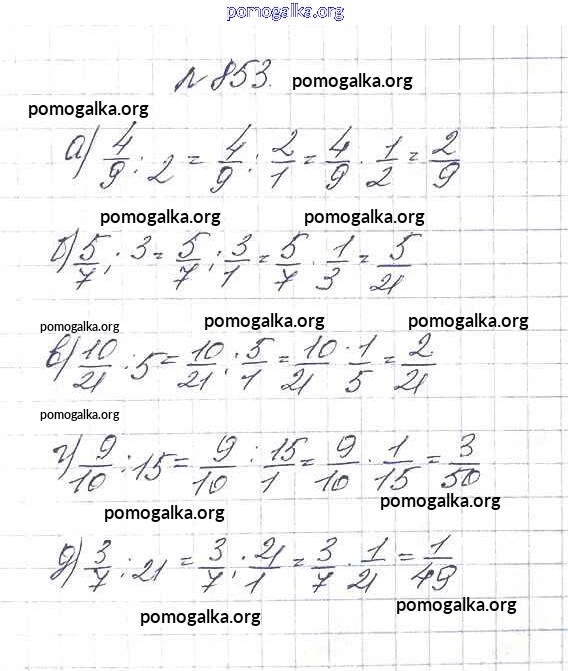 pomogalka.org
№ 853.
pomogalka.org
pomogalka.org
а) 4/9 : 2 = 4/9 : 2/1 = 4/9 · 1/2 = 2/9
pomogalka.org pomogalka.org
б) 5/7 : 3 = 5/7 : 3/1 = 5/7 · 1/3 = 5/21
pomogalka.org pomogalka.org pomogalka.org
в) 10/21 : 5 = 10/21 : 5/1 = 10/21 · 1/5 = 2/21
pomogalka.org
г) 9/10 : 15 = 9/10 : 15/1 = 9/10 · 1/15 = 3/50
pomogalka.org
pomogalka.org
д) 3/7 : 21 = 3/7 : 21/1 = 3/7 · 1/21 = 1/49
pomogalka.org
pomogalka.org